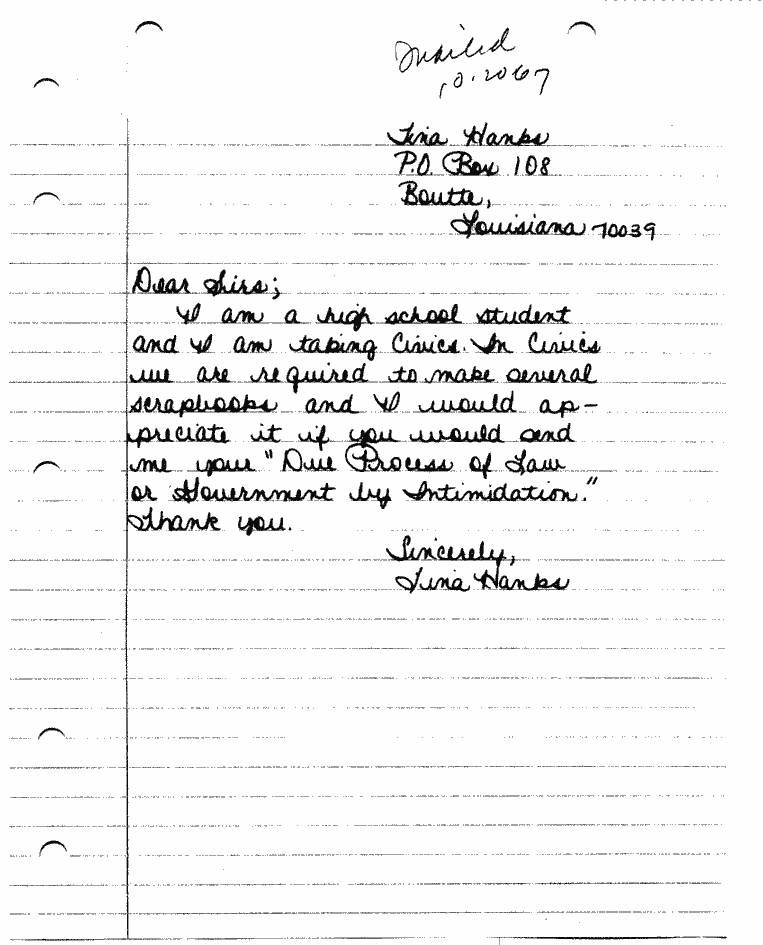 mailed
10.20.67
Tina Hanks
P.O. Box 108
Boutte,
Louisiana 70039
Dear Sirs;
I am a high school student
and I am taking Civics. In Civics
we are required to make several
scrapbooks and I would ap-
preciate it if you would send
me your "Due Process of Law
or Government by Intimidation."
Thank you.
Sincerely,
Tina Hanks